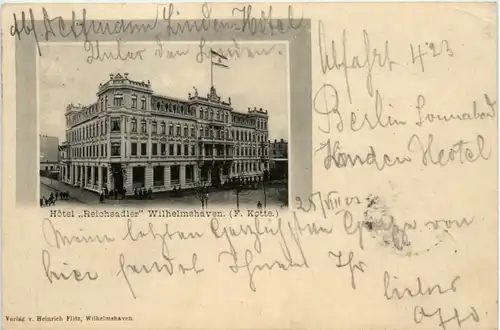 Abf. Detmann Linden-Hotel
Unter den Linden.
Abfahrt 4 23
Berlin Sonnabend
Linden Hotel
Hôtel „Reichsadler" Wilhelmshaven. (F. Kotte.)
25/VII 03
Meine letzten herzlichsten Grüße von
hier sendet Ihnen Ihr
lieber
Otto
Verlag v. Heinrich Flitz, Wilhelmshaven.